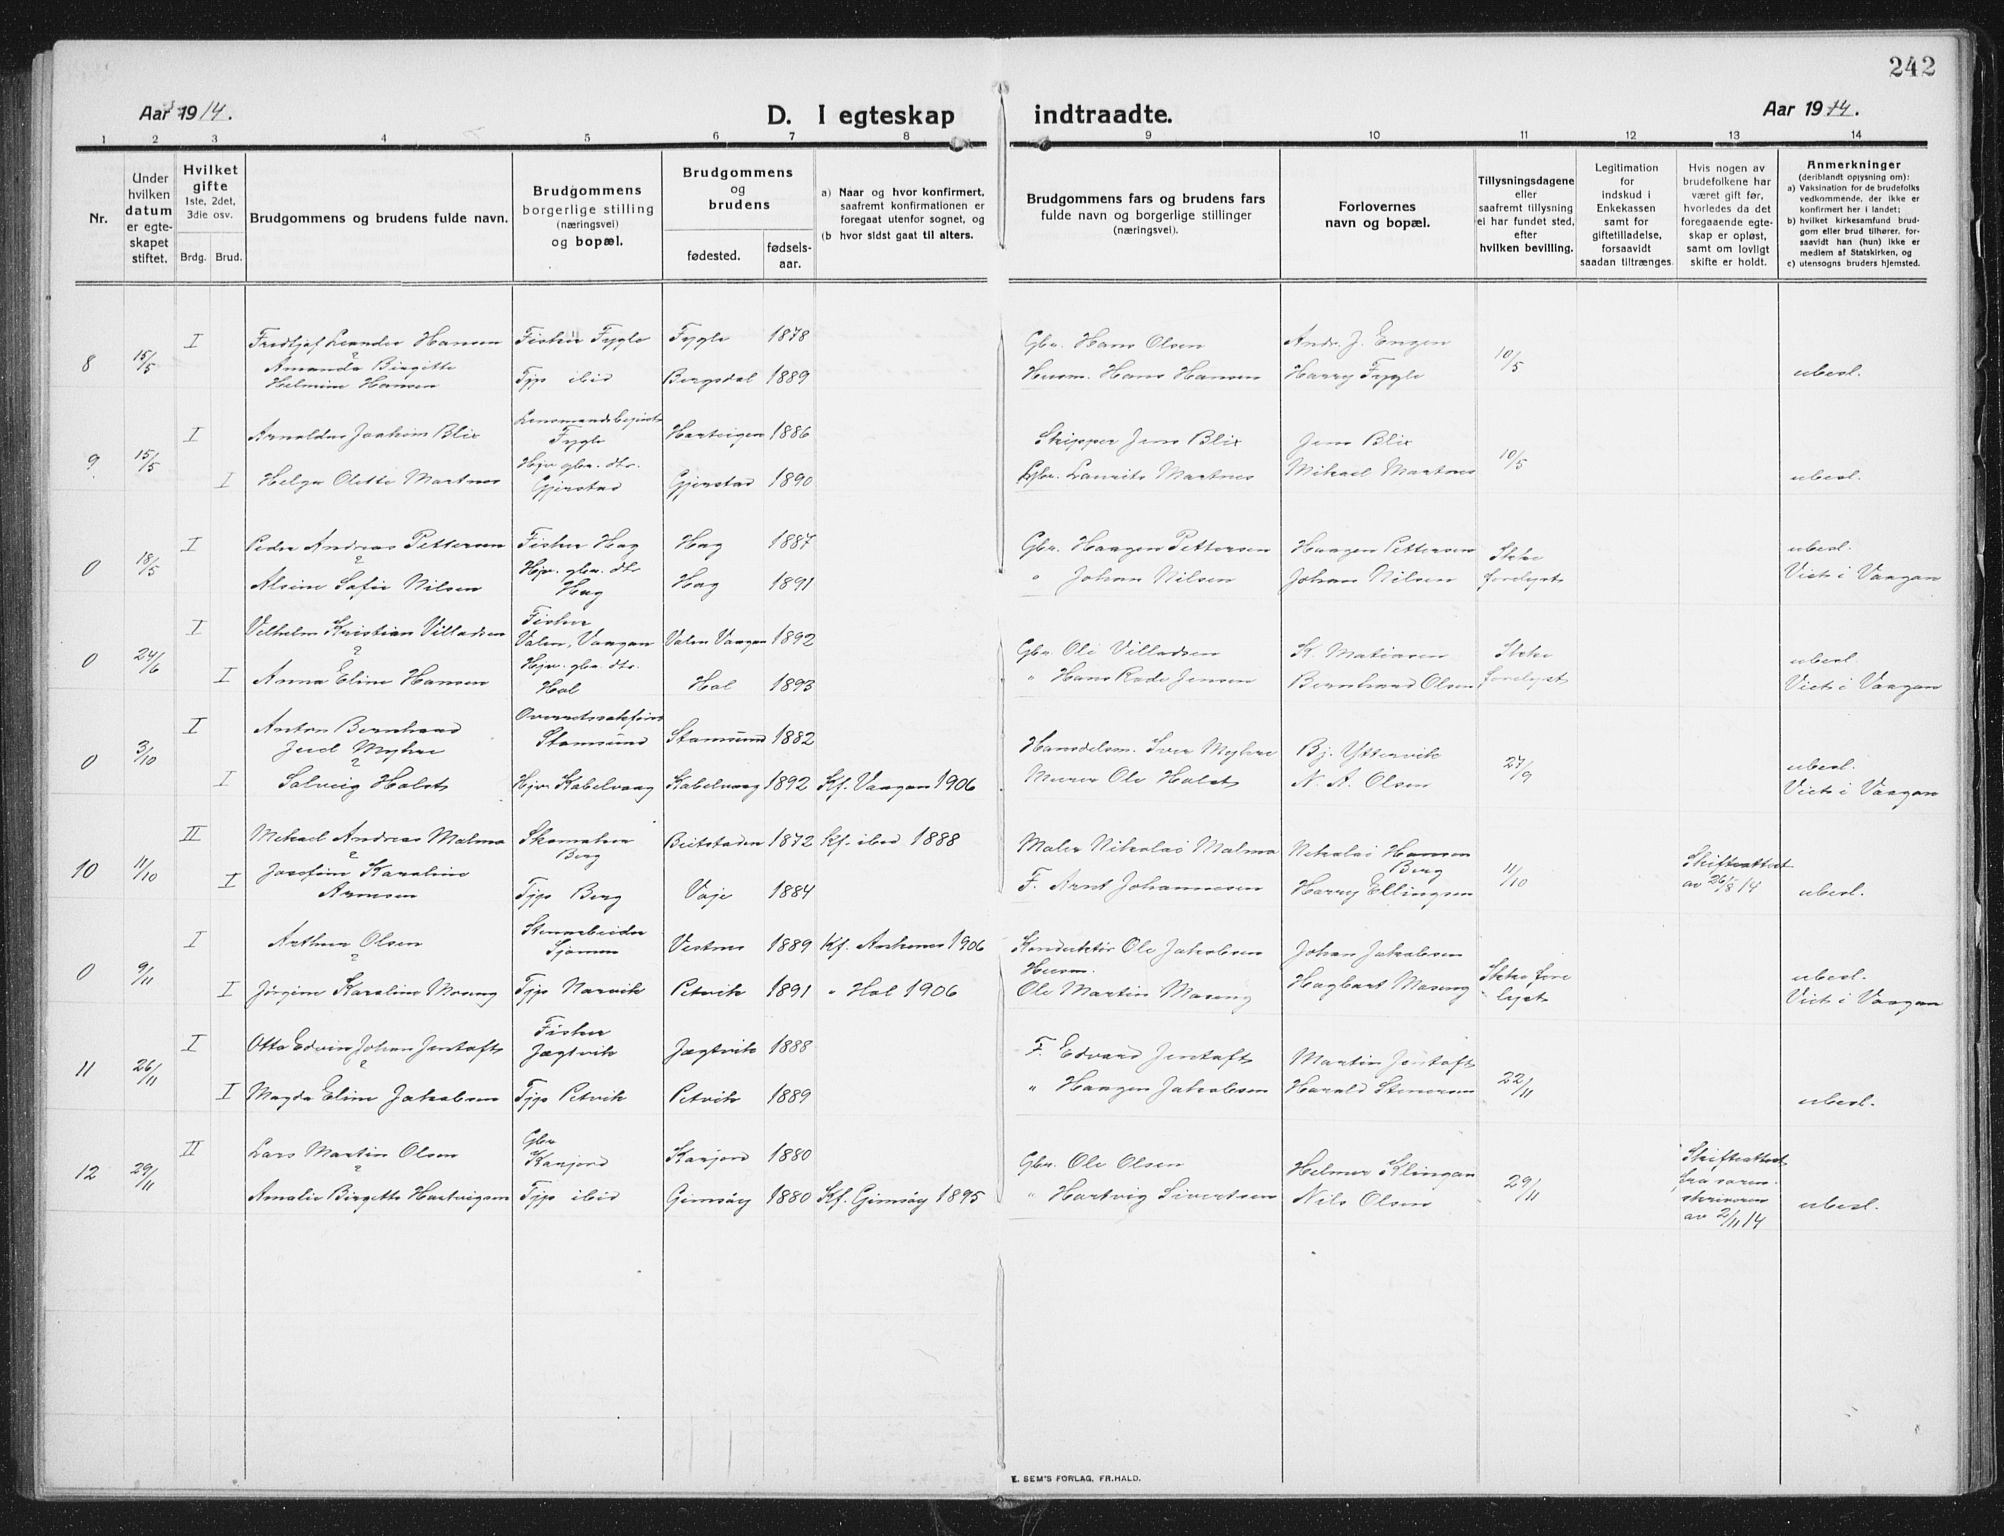 242
Aar 1914.
D. I egteskap indtraadte.
Aar 1914.
1 2 3 4 5 6 7 8 9 10 11 12 13 14
Nr.
Under hvilken datum er egte-skapet stiftet.
Hvilket gifte 1ste, 2det, 3die osv.
Brdg. Brud.
Brudgommens og brudens fulde navn.
Brudgommens borgerlige stilling (næringsvei) og bopæl.
Brudgommens og brudens
fødested. fødsels-aar.
a) Naar og hvor konfirmert, saafremt konfirmationen er foregaat utenfor sognet, og
(b hvor sidst gaat til alters.
Brudgommens fars og brudens fars fulde navn og borgerlige stillinger (næringsvei).
Forlovernes navn og bopæl.
Tillysningsdagene eller saafremt tillysning ei har fundet sted, efter hvilken bevilling.
Legitimation for indskud i Enkekassen samt for giftetilladelse, forsaavidt saadan tiltrænges.
Hvis nogen av brudefolkene har været gift før, hvorledes da det foregaaende egte-skap er opløst, samt om lovligt skifte er holdt.
Anmerkninger (deriblandt opjysning om):
a) Vaksination for de brudefolks vedkommende, der ikke er konfirmert her i landet;
b) hvilket kirkesamfund brud-gom eller brud tilhører, for-saavidt han (hun) ikke er medlem af Statskirken, og
c) utensogns bruders hjemsted.
8 15/5 I Fredtjof Leander Hansen Fisker Fygle Fygle 1878 Gbr. Hans Olsen Andr. J. Engen 10/5
Amanda Birgitte Helmine Hansen Tjp ibid Borgsdal 1889 Husm. Hans Hansen Harry Fygle ubesl.
9 15/5 I Arnoldus Joakim Blix Lensmandsbetjent Fygle Hartvigen 1886 Skipper Jens Blix Jens Blix 10/5
I Helga Olette Martnes Hjv. gbr. dtr. Gjerstad Gjerstad 1890 Gbr. Laurits Martnes Mikael Martnes ubesl.
0 18/5 I Peder Andreas Pettersen Fisker Hag Hag 1887 Gbr. Haagen Pettersen Haagen Pettersen Ikke ubesl.
Alsine Sofie Nilsen Hjv. gbr. dtr Hag Hag 1891 " Johan Nilsen Johan Nilsen forelyst Viet i Vaagan
0 24/6 I Vilhelm Kristian Villadsen Fisker Valen, Vaagan Valen Vaagan 1892 Gbr. Ole Villadsen K. Matiasen Ikke ubesl.
I Anna Eline Hansen Hjv. gbr. dtr. Hol Hol 1893 " Hans Rode Jensen Bernhard Olsen forelyst Viet i Vaagan
0 3/10 I Anton Bernhard Juel Myhre Overretssakfører Stamsund Stamsund 1882 Handelsm. Iver Myhre Bj. Yttervik 27/9 ubesl.
I Solveig Holst Hjv. Kabelvaag Kabelvaag 1892 Kf. Vaagan 1906 Murer Ole Holst N. A. Olsen Viet i Vaagan
10 11/10 II Mikael Andreas Malmo Skomaker Berg Beitstaden 1872 Kf. ibid 1888 Maler Nikolai Malmo Nikolai Hansen Berg 11/10 Skifteattest av 26/8 14
I Josefine Karoline Arnesen Tjp Berg Voje 1884 F. Arnt Johannesen Harry Ellingsen ubesl.
0 9/11 I Arthur Olsen Stenarbeider Sjømm Vestnes 1889 Kf. Ankenes 1906 Konduktør Ole Jakobsen Johan Jakobsen Ikke fore ubesl.
I Jørgine Karoline Moseng Tjp Narvik Petvik 1891 " Hol 1906 Husm. Ole Martin Moseng Hagbart Moseng lyst Viet i Vaagan
11 26/11 I Otto Edvin Johan Jentoft Fisker Jægtvik Jægtvik 1888 F. Edvard Jentoft Martin Jentoft 22/11
I Magda Eline Jakobsen Tjp Petvik Petvik 1889 " Haagen Jakobsen Harald Stenersen ubesl.
12 29/11 II Lars Martin Olsen Gbr Kanjord Kanjord 1880 Gbr. Ole Olsen Helmer Klingan 29/11 Skifteattest fra soren-skriveren av 2/11 14
Amalie Birgitte Hartvigsen Tjp ibid Gimsøy 1880 Kf. Gimsøy 1895 " Hartvig Sivertsen Nils Olsen ubesl.
E. SEM'S FORLAG, FR.HALD.